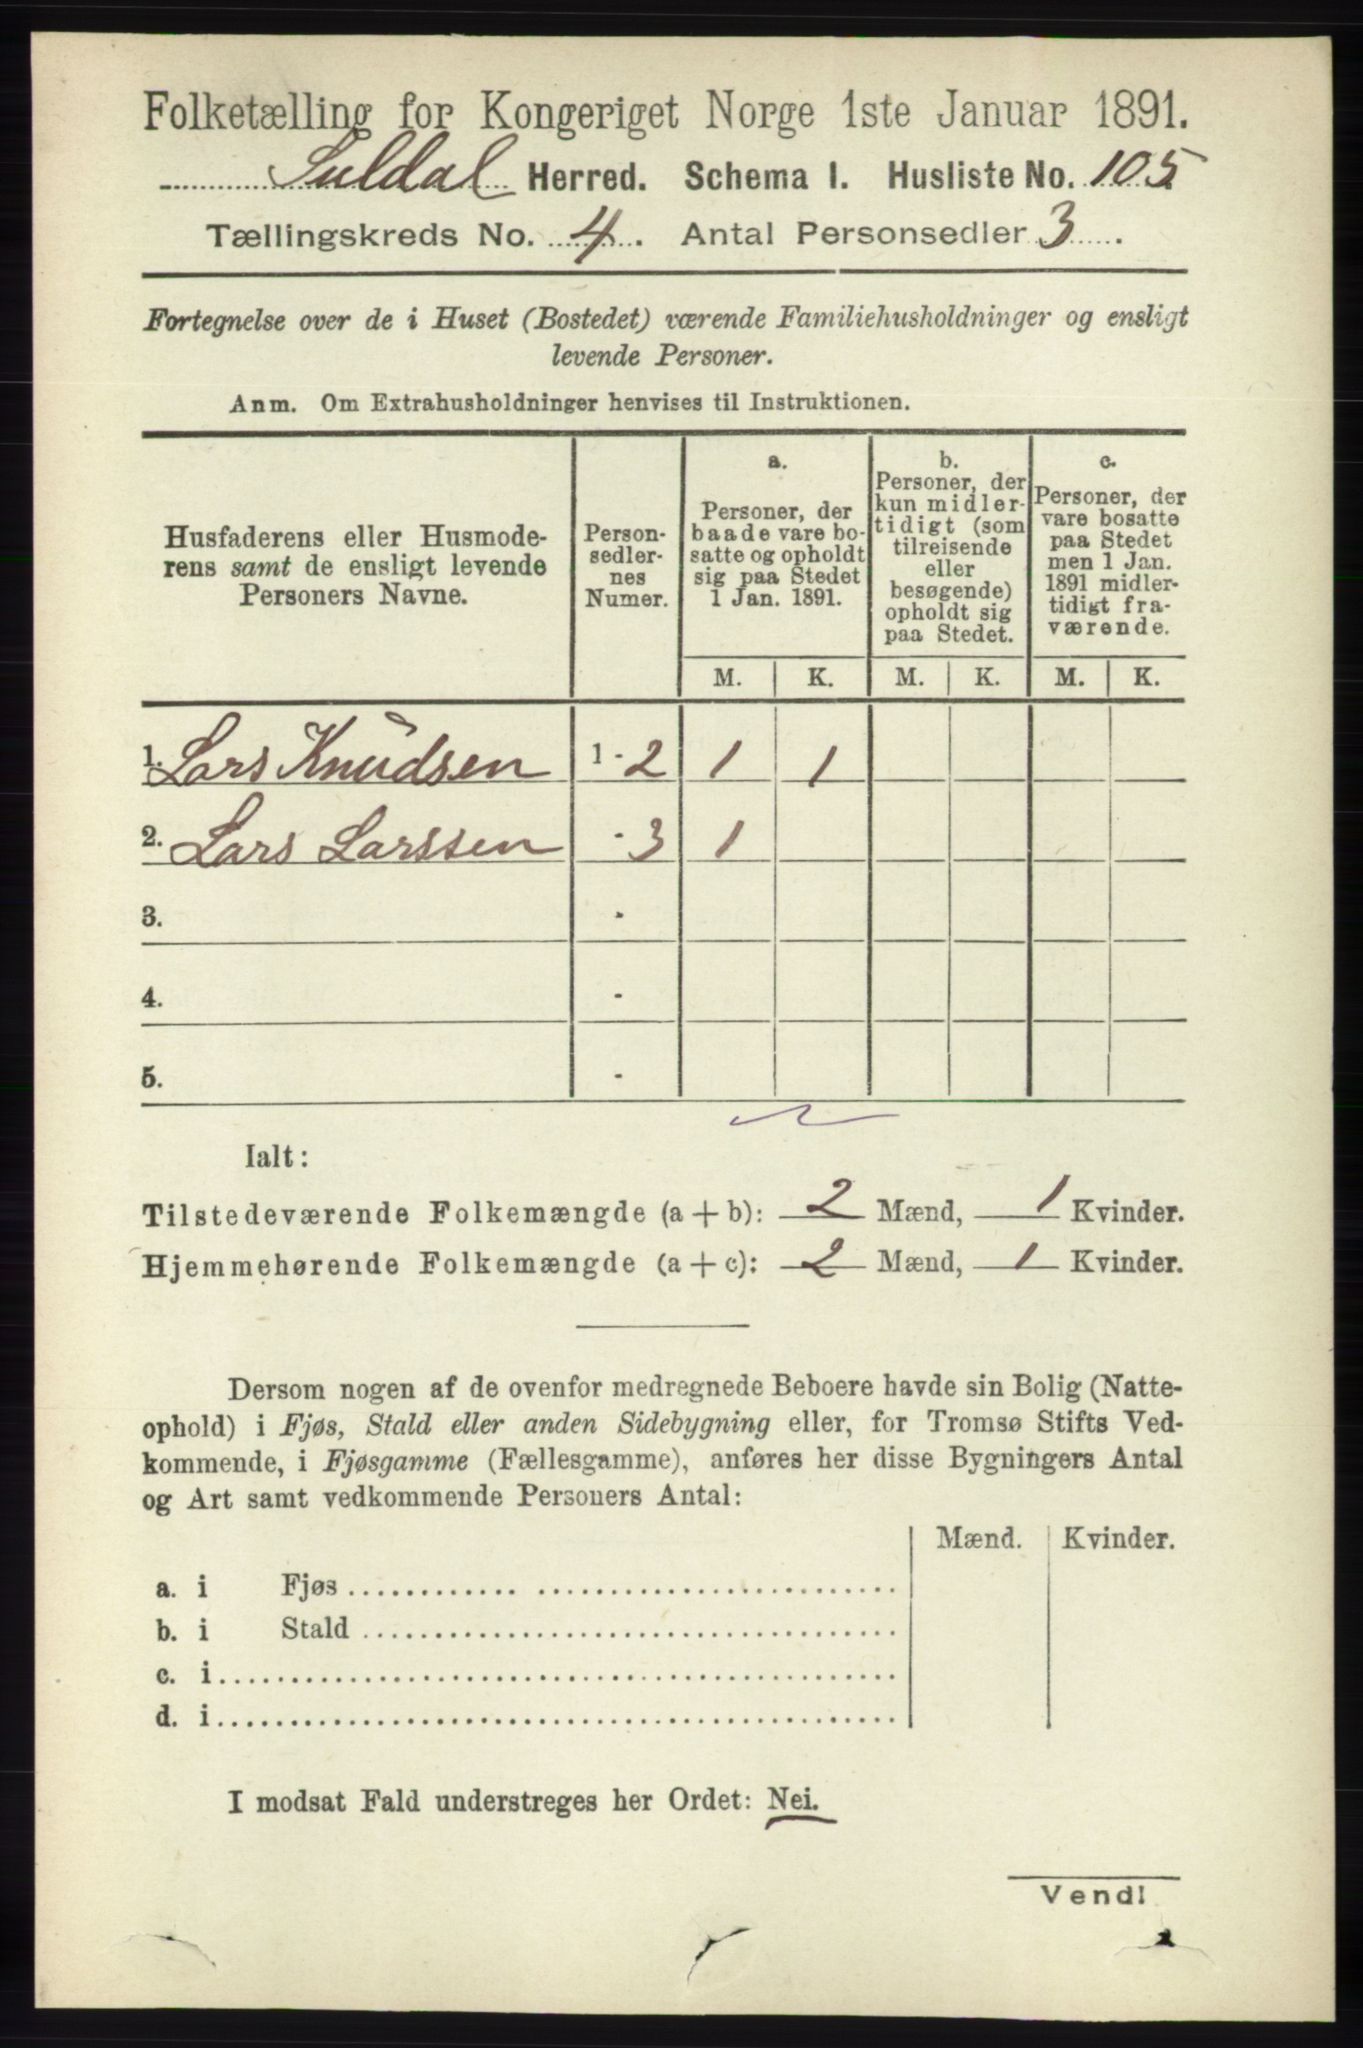 Folketælling for Kongeriget Norge 1ste Januar 1891.
Suldal Herred. Schema I. Husliste No. 105
Tællingskreds No. 4. Antal Personsedler 3.
Fortegnelse over de i Huset (Bostedet) værende Familiehusholdninger og ensligt
levende Personer.
Anm. Om Extrahusholdninger henvises til Instruktionen.
Husfaderens eller Husmode-
rens samt de ensligt levende
Personers Navne.
Person-
sedler-
nes
Numer.
a.
Personer, der
baade vare bo-
satte og opholdt
sig paa Stedet
1 Jan. 1891.
b.
Personer, der
kun midler-
tidigt (som
tilreisende
eller
besøgende)
opholdt sig
paa Stedet.
c.
Personer, der
vare bosatte
paa Stedet
men 1 Jan.
1891 midler-
tidigt fra-
værende.
M. K. M. K. M. K.
1. Lars Knudsen 1 - 2 1 1
2. Lars Larssen - 3 1
3. -
4. -
5. -
Ialt:
Tilstedeværende Folkemængde (a + b): 2 Mænd, 1 Kvinder.
Hjemmehørende Folkemængde (a + c): 2 Mænd, 1 Kvinder.
Dersom nogen af de ovenfor medregnede Beboere havde sin Bolig (Natte-
ophold) i Fjøs, Stald eller anden Sidebygning eller, for Tromsø Stifts Ved-
kommende, i Fjøsgamme (Fællesgamme), anføres her disse Bygningers Antal
og Art samt vedkommende Personers Antal:
Mænd. Kvinder.
a. i Fjøs
b. i Stald
c. i
d. i
I modsat Fald understreges her Ordet: Nei.
Vend!